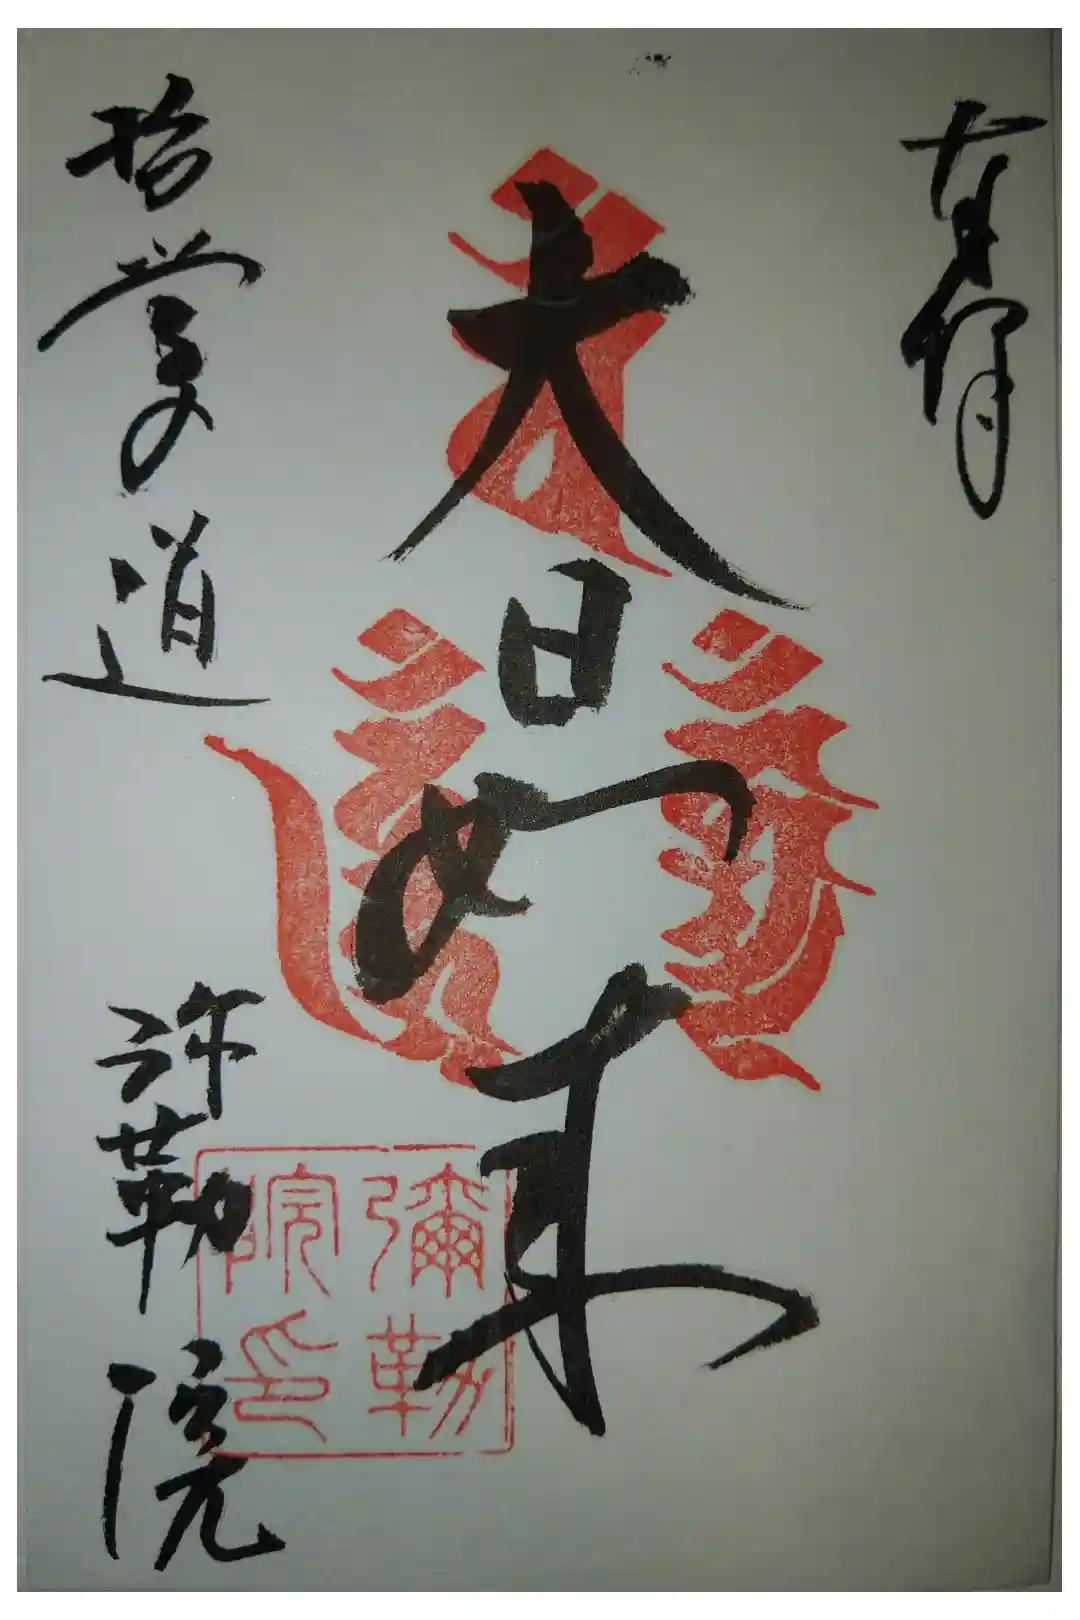 奉拝
大日如来
哲学道
弥勒院
彌勒院印